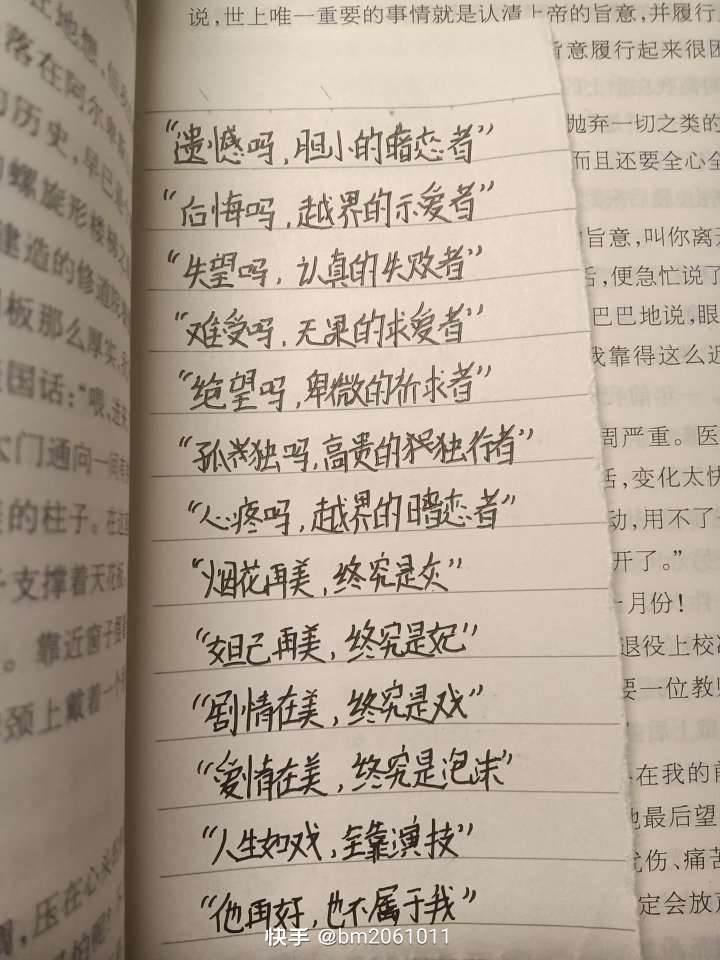 说，世上唯一重要的事情就是认清上帝的旨意，并履行
旨意履行起来很困
抛弃一切之类的
而且还要全心全
旨意，叫你离开
活，便急忙说了
巴巴地说，眼
我靠得这么近
周严重。医
活，变化太快
动，用不了一
开了。”
一月份！
退役上校
要一位教
在我的前
他最后望
忧伤、痛苦
定会放弃
正地想，但
落在阿尔
的历史，早已是
的螺旋形楼梯
建造的修道院
板那么厚实
国话：“喂，进来
大门通向一间
的柱子。在这
支撑着天花板
。靠近窗子
颈上戴着一个
，压在心
“遗憾吗，胆小的暗恋者”
“后悔吗，越界的示爱者”
“失望吗，认真的失败者”
“难受吗，无果的求爱者”
“绝望吗，卑微的祈求者”
“孤独吗，高贵的独行者”
“心疼吗，越界的暗恋者”
“烟花再美，终究是灰”
“妲己再美，终究是妃”
“剧情在美，终究是戏”
“爱情在美，终究是泡沫”
“人生如戏，全靠演技”
“他再好，也不属于我”
快手 @bm2061011